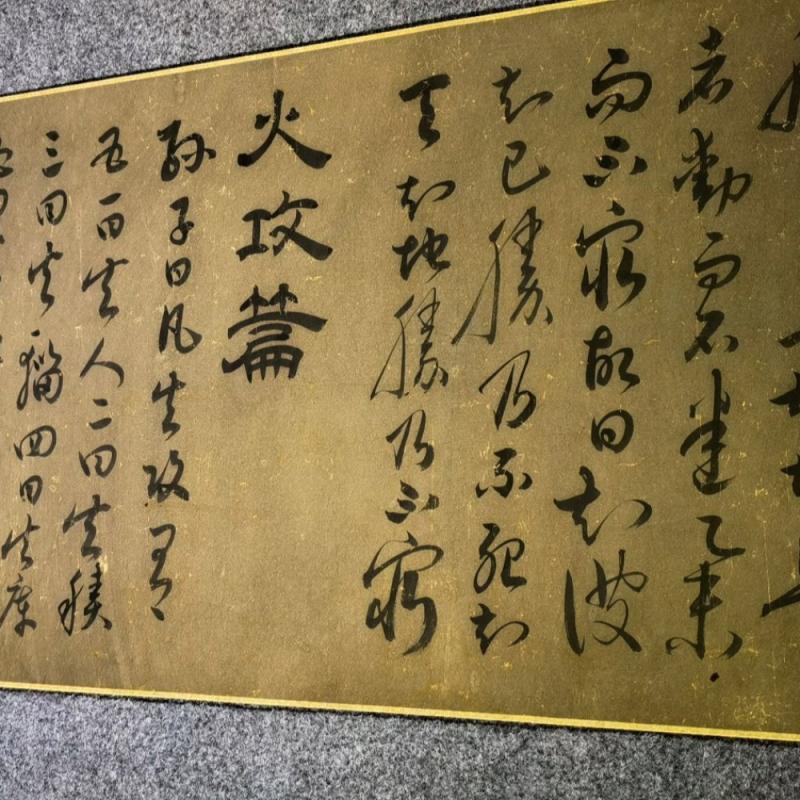 者動而不
而不窮故曰知彼
知己勝乃不殆知
天知地勝乃不窮
火攻篇
孫子曰凡火攻有
五一曰火人二曰火積
三曰火輜四曰火庫